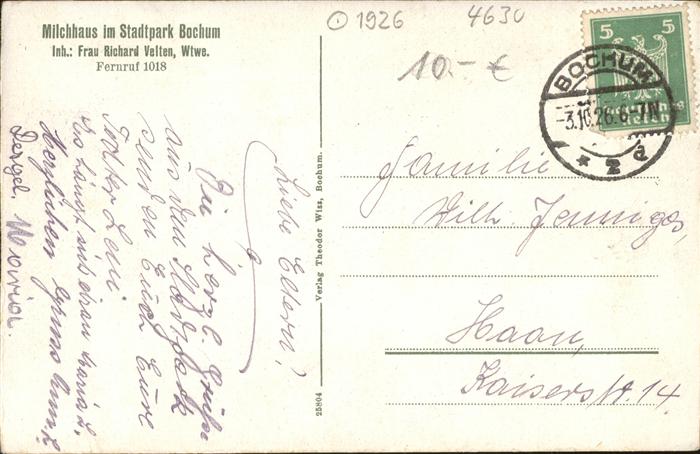 Milchhaus im Stadtpark Bochum
Inh.: Frau Richard Velten, Wtwe.
Fernruf 1018
1926
4630
10.- €
5 5
BOCHUM
-3.10.26.6-7N
* 2 d
Liebe Eltern!
Die herzl. Grüße
aus dem Stadtpark
senden Euch Eure
Tochter Leni
Herzlichen Gruss
Marian.
Verlag Theodor Wiss, Bochum.
25804
Familie
Wilh. Jenniges,
Haan,
Kaiserstr. 14.